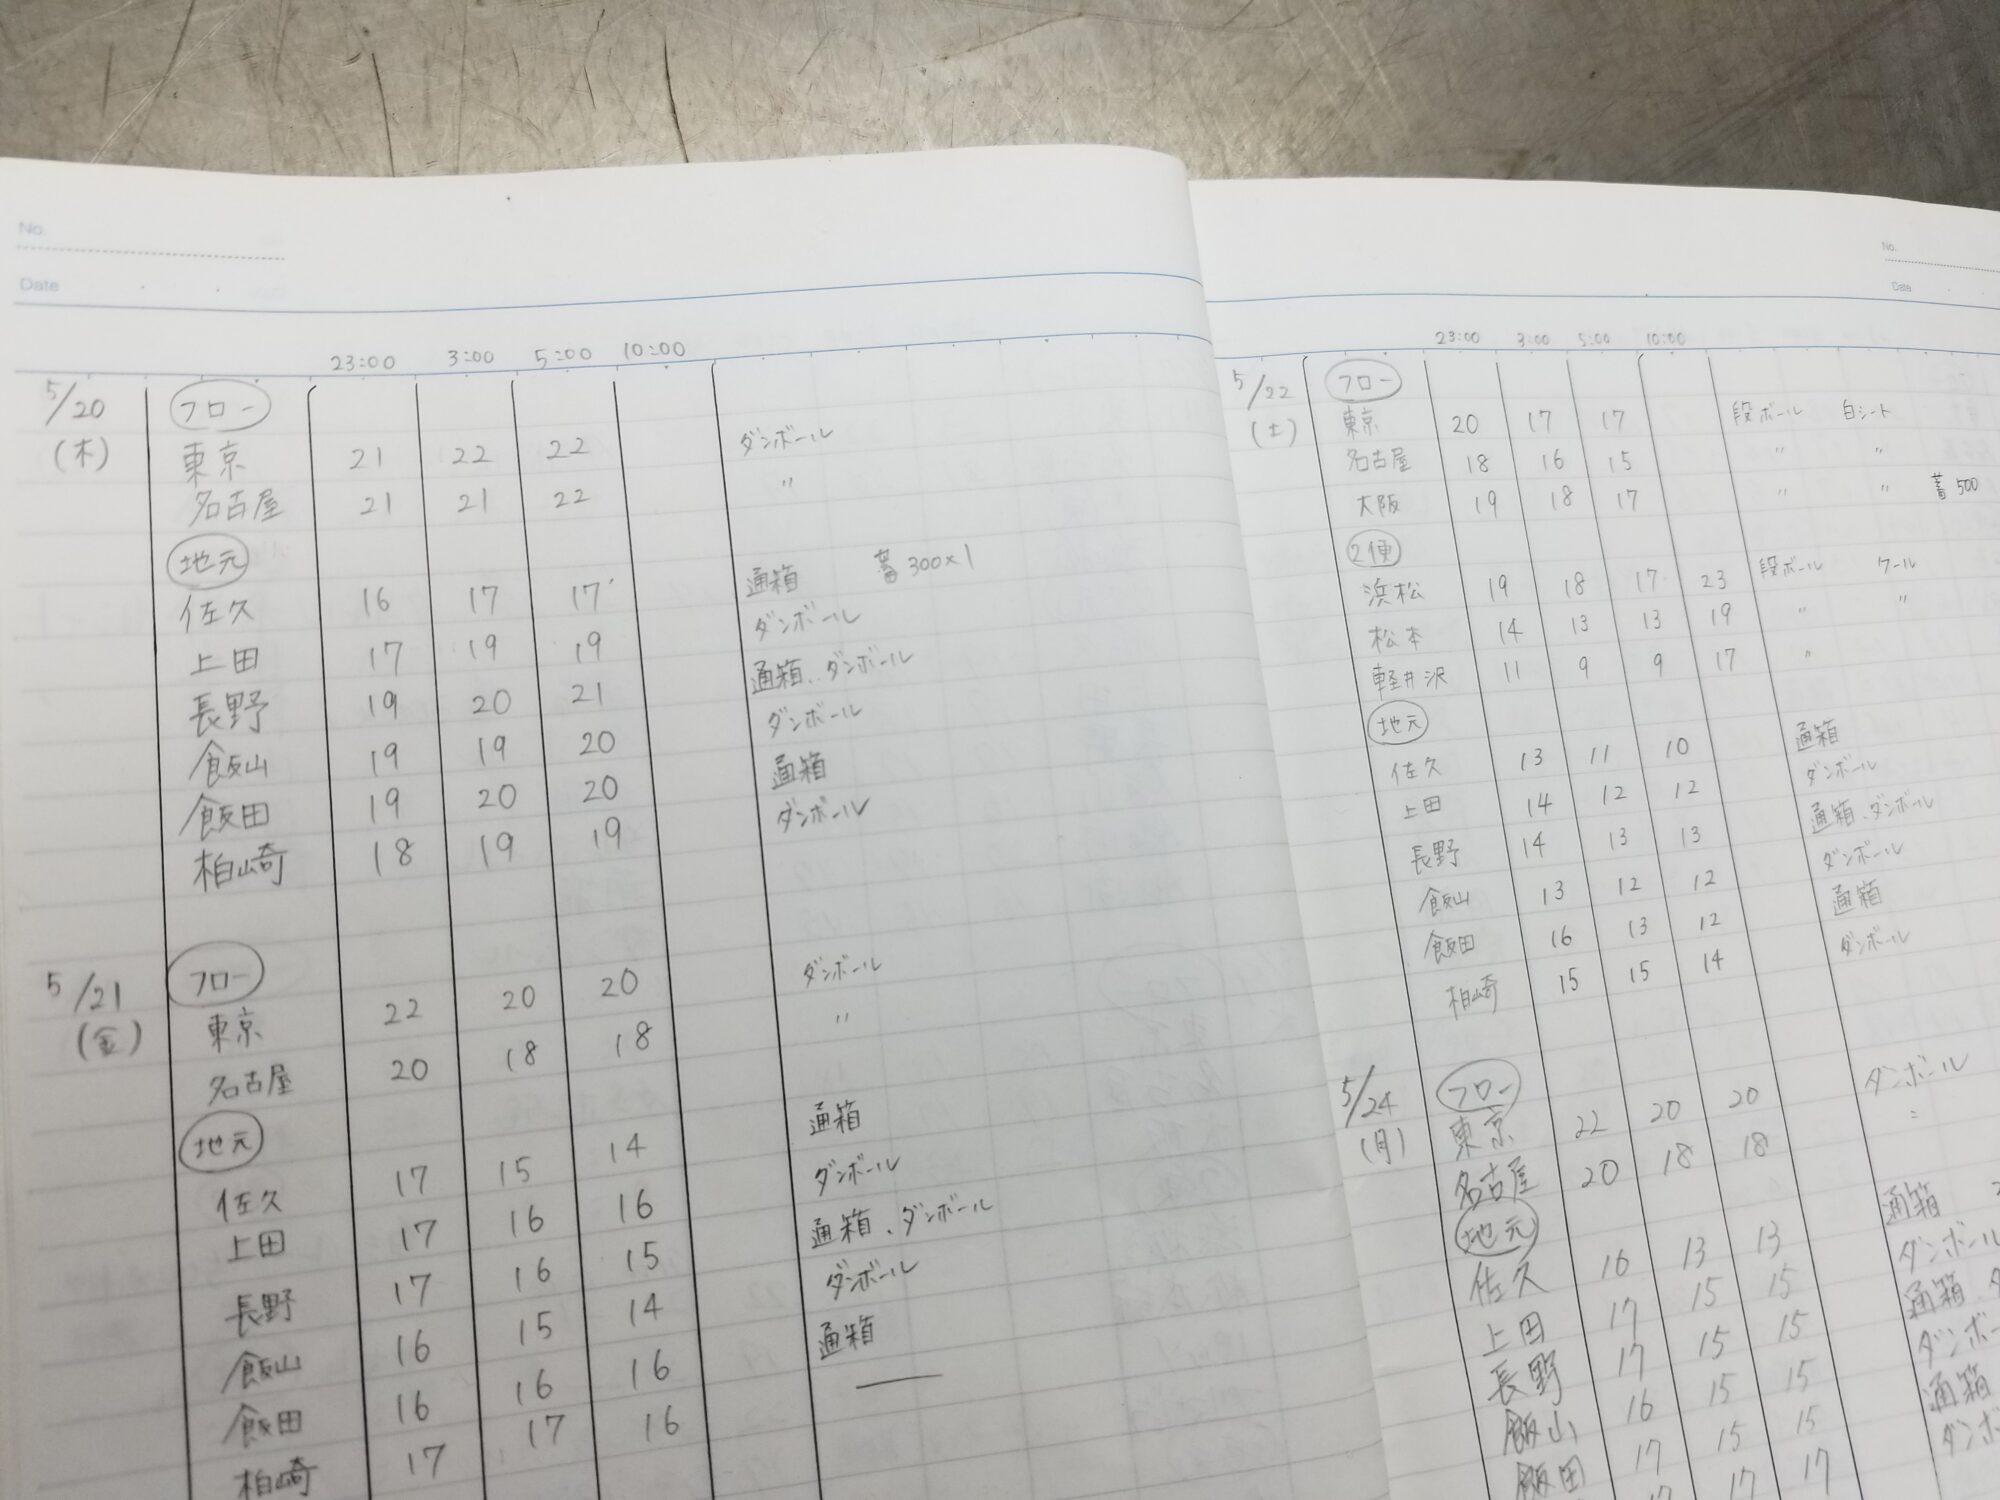 No.
Date
23:00 3:00 5:00 10:00
5/20 フロー
(木) 東京 21 22 22 ダンボール
名古屋 21 21 22 〃
地元
佐久 16 17 17 通箱 蓄300×1
上田 17 19 19 ダンボール
長野 19 20 21 通箱、ダンボール
飯山 19 19 20 ダンボール
飯田 19 20 20 通箱
柏崎 18 19 19 ダンボール
5/21 フロー
(金) 東京 22 20 20 ダンボール
名古屋 20 18 18 〃
地元
佐久 17 15 14 通箱
上田 17 16 16 ダンボール
長野 17 16 15 通箱、ダンボール
飯山 16 15 14 ダンボール
飯田 16 16 16 通箱
柏崎 17 17 16 —
No.
Date
23:00 3:00 5:00 10:00
5/22 フロー
(土) 東京 20 17 17 段ボール 白シート
名古屋 18 16 15 〃 〃
大阪 19 18 17 〃 〃 蓄500
2便
浜松 19 18 17 23 段ボール クール
松本 14 13 13 19 〃 〃
軽井沢 11 9 9 17 〃
地元
佐久 13 11 10 通箱
上田 14 12 12 ダンボール
長野 14 13 13 通箱、ダンボール
飯山 13 12 12 ダンボール
飯田 16 13 12 通箱
柏崎 15 15 14 ダンボール
5/24 フロー
(月) 東京 22 20 20 ダンボール
名古屋 20 18 18 〃
地元
佐久 16 13 13 通箱
上田 17 15 15 ダンボール
長野 17 15 15 通箱、ダ
飯山 16 15 15 ダンボー
飯田 17 15 15 通箱
17 17 ダンボ